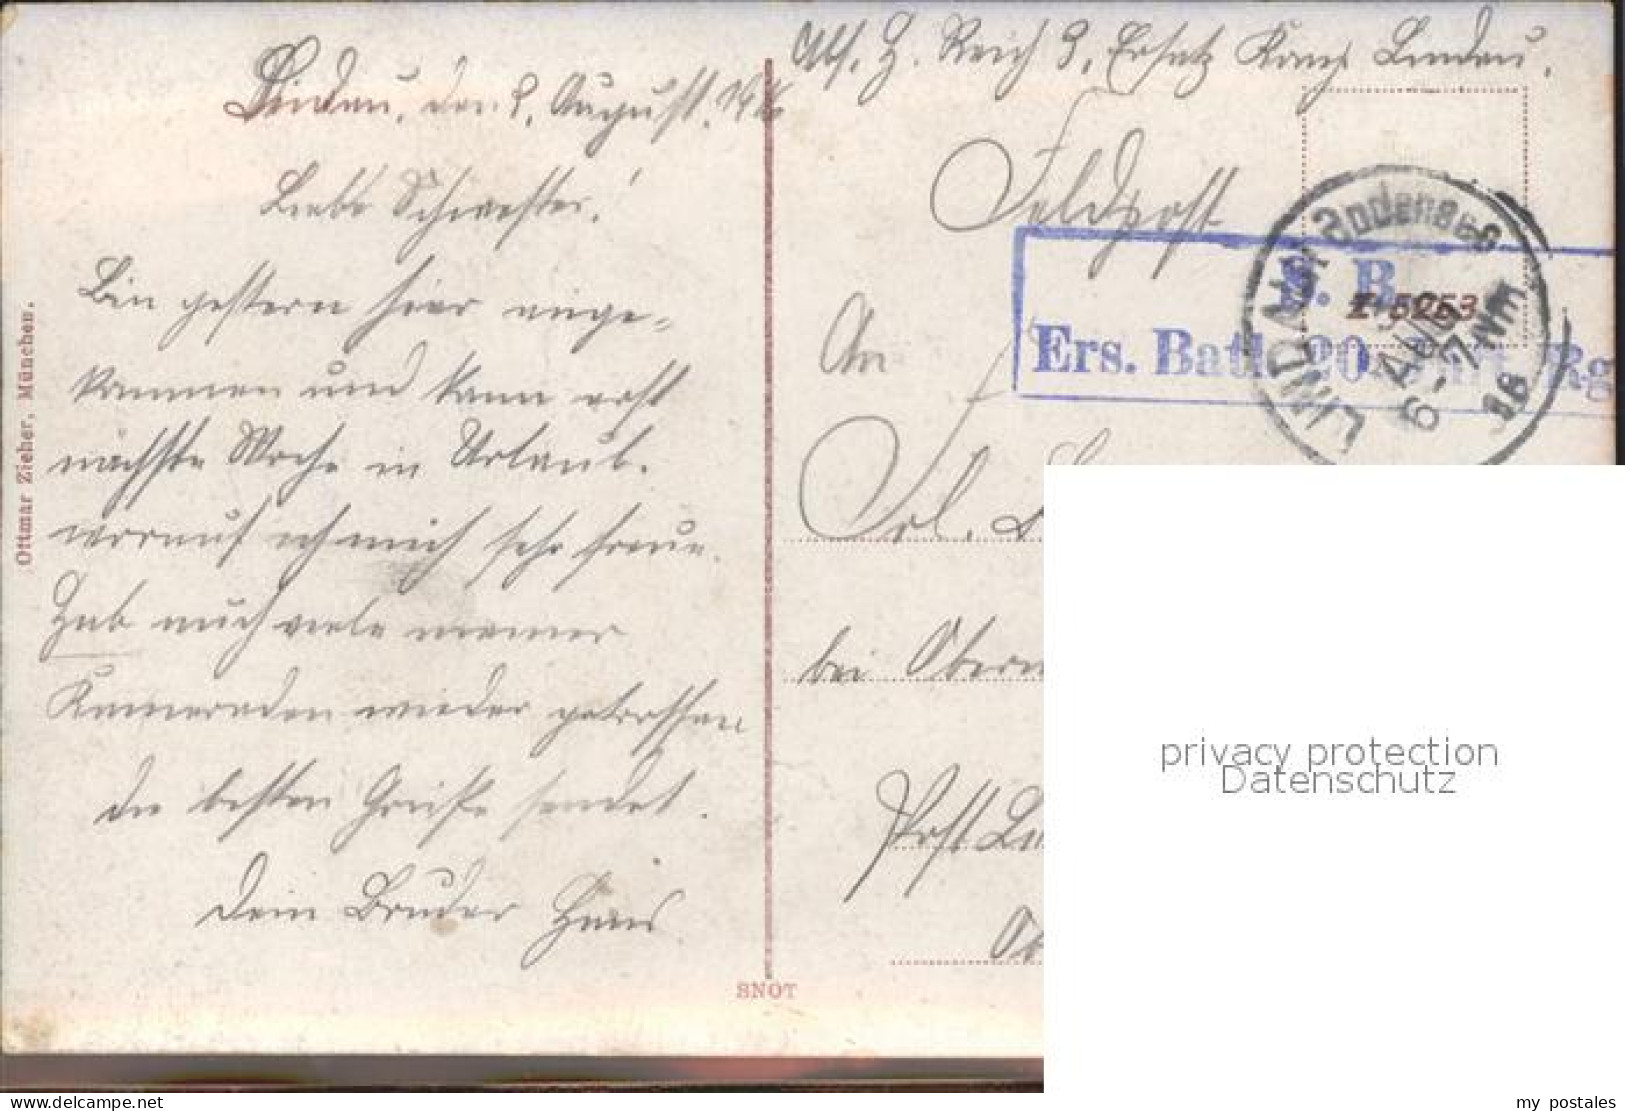 Lindau, den 8. August. 1916
Liebe Schwester!
Bin gestern hier ange-
kommen und kann erst
nächste Woche in Urlaub.
worauf ich mich sehr freue.
Hab auch viele meiner
Kameraden wieder getroffen
die besten Grüße sendet.
Dein Bruder Hans
Ottmar Zieher, München.
SNOT
Abs. H. Reich 3. Ersatz Komp Lindau.
Feldpost
S. B.
Ers. Batl. 20. Rg
LINDAU Bodensee
AUG
6-7 Nm
16
Z-5253
An
Frl.
bei
Post
privacy protection
Datenschutz
my postales